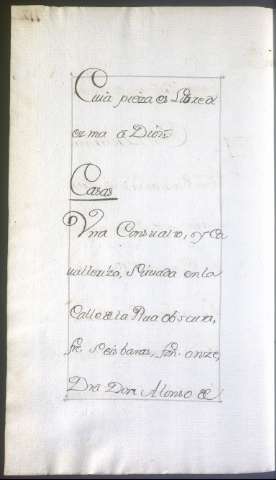 Cuia pieza es Libre de
es ma a Dios
Casas
Vna Con suatro, y Ca
uallerizo, Situada en la
Calle de la Rua obscura,
fte. Seis baras, fdo. onze,
Dra Don Alonso de